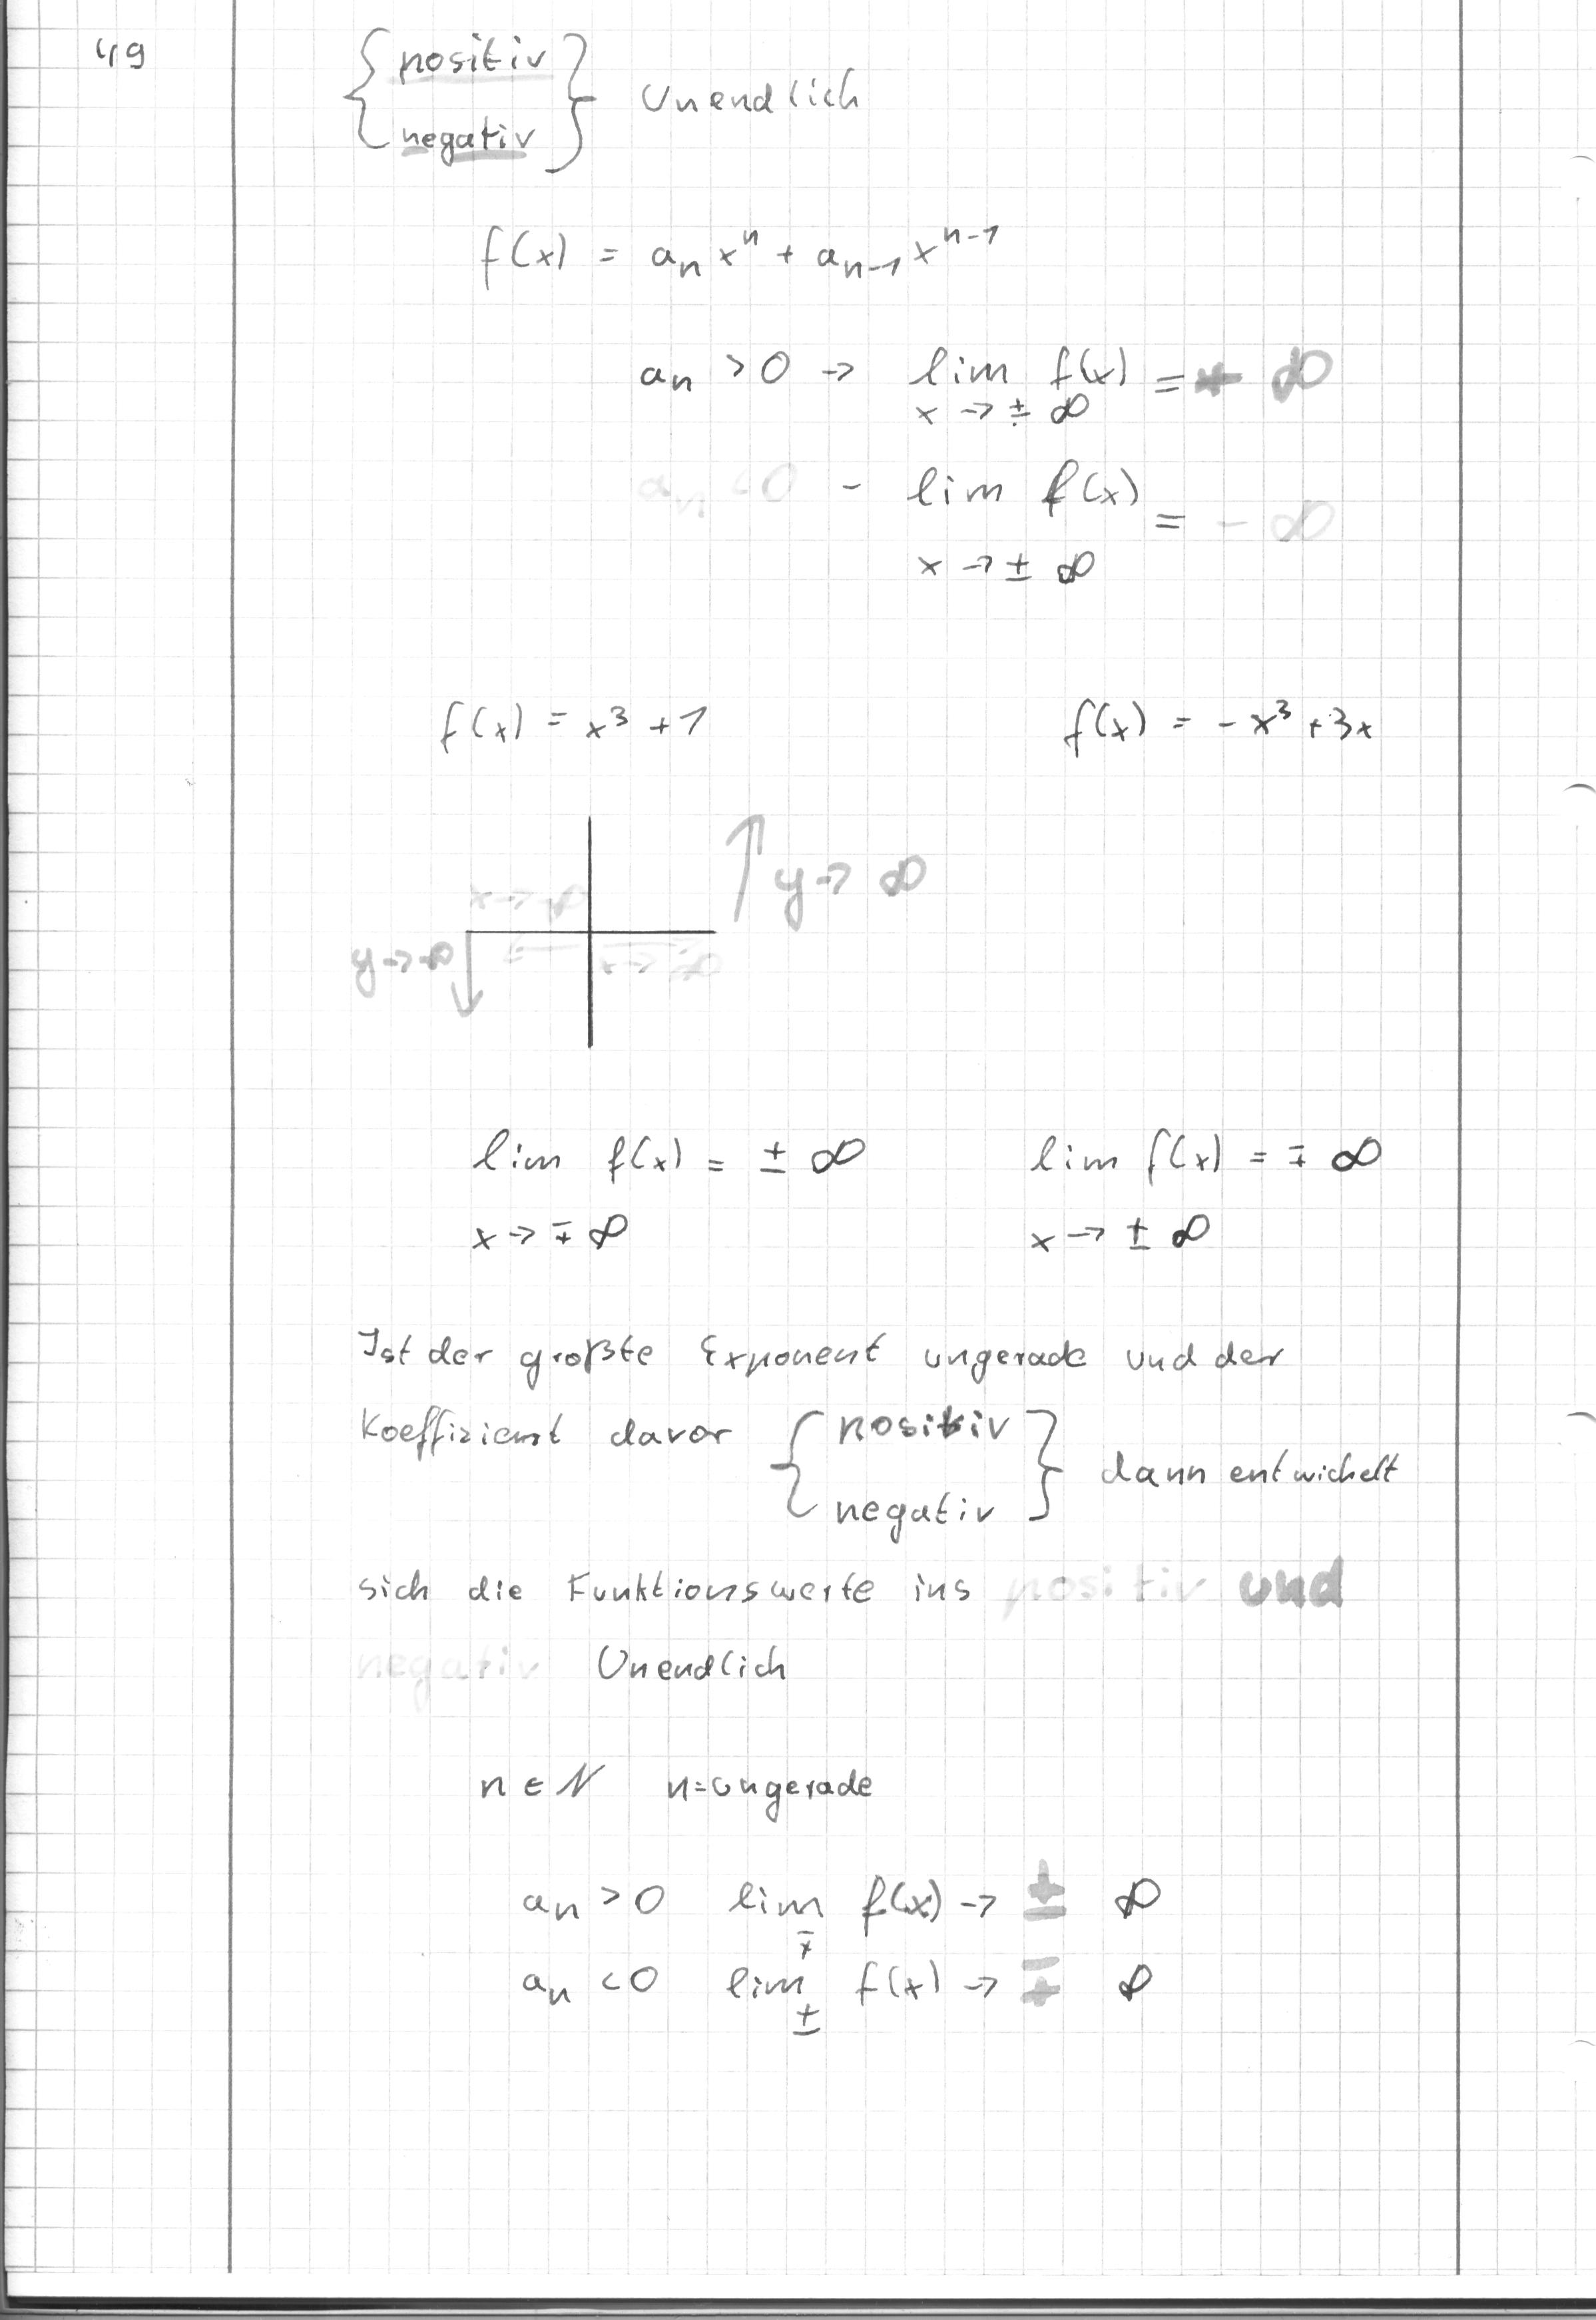 49
{ positiv
negativ } Unendlich
f(x) = aₙxⁿ + aₙ₋₁xⁿ⁻¹
aₙ > 0 → lim f(x) = + ∞
x → ± ∞
aₙ < 0 - lim f(x) = - ∞
x → ± ∞
f(x) = x³ + 1
f(x) = - x³ + 3x
y → ∞
x → -∞
y → -∞
x → ∞
lim f(x) = ± ∞
x → ∓ ∞
lim f(x) = ∓ ∞
x → ± ∞
Ist der größte Exponent ungerade und der
Koeffizient davor { positiv
negativ } dann entwickelt
sich die Funktionswerte ins positiv und
negativ Unendlich
n ∈ N n=ungerade
aₙ > 0 lim f(x) → ± ∞
∓
aₙ < 0 lim f(x) → ∓ ∞
±